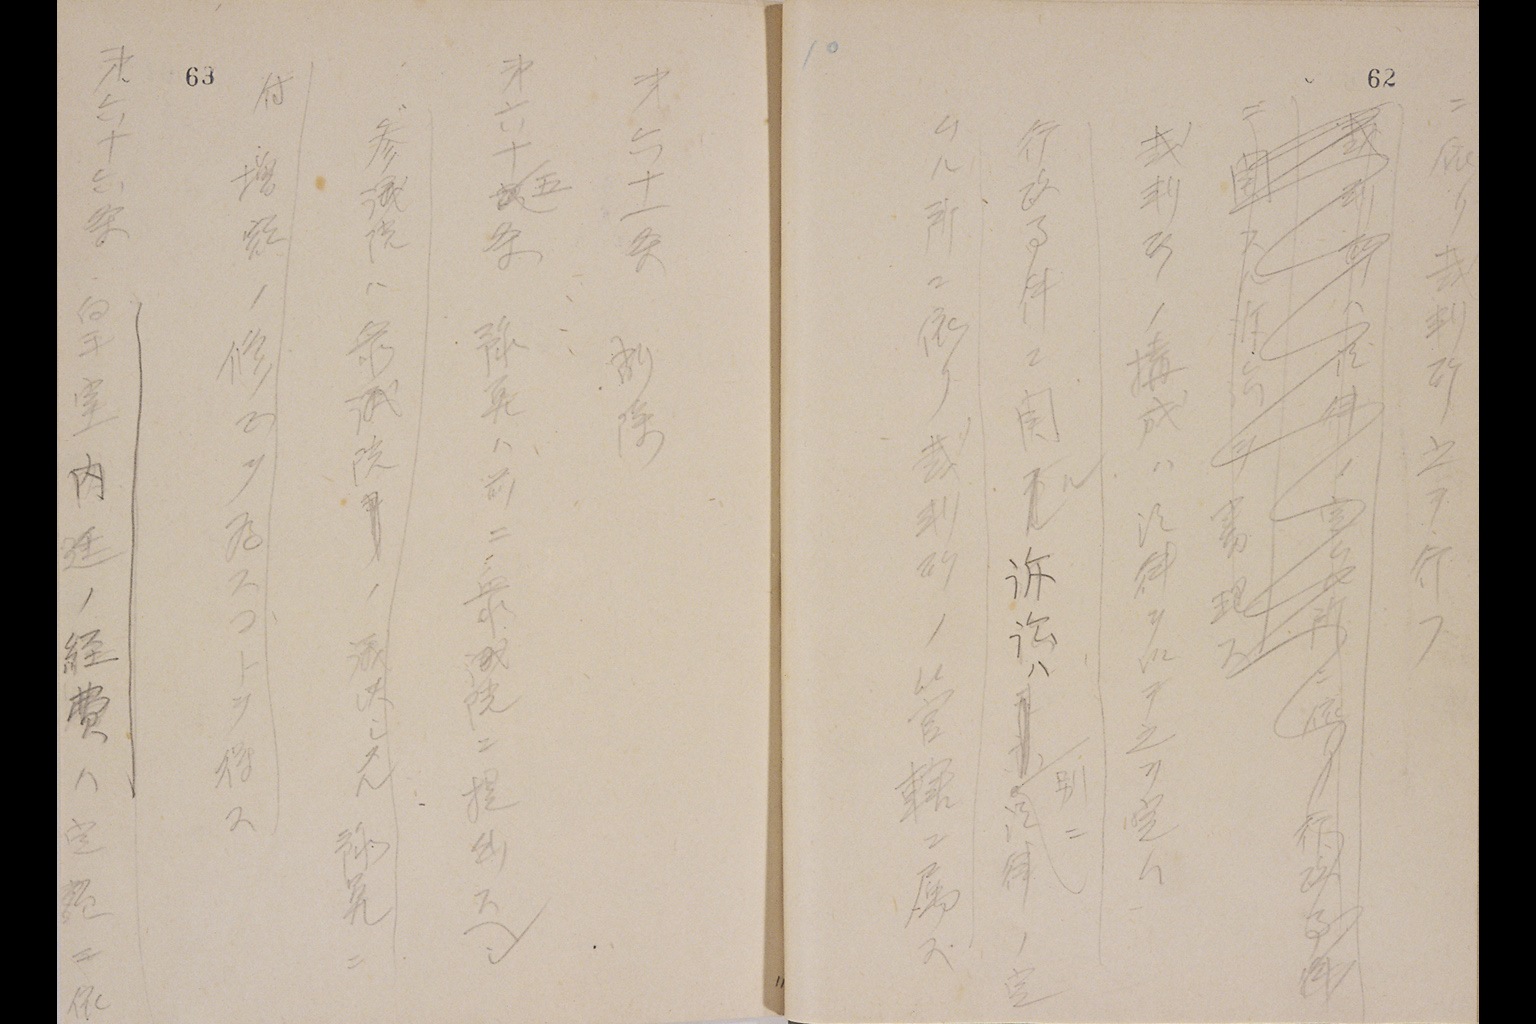 62
ニ依リ裁判所之ヲ行フ
裁判所ハ法律ノ定ムル所ニ依リ行政事件
ニ関スル訴訟ヲ
裁判所ノ構成ハ法律ヲ以テ之ヲ定ム
行政事件ニ関スル訴訟ハ別ニ法律ノ定
ムル所ニ依リ裁判所ノ管轄ニ属ス
10
63
第六十一条 削除
第六十五条 予算ハ前ニ衆議院ニ提出スヘシ
参議院ハ衆議院ノ議決シタル予算ニ
付増額ノ修正ヲ為スコトヲ得ス
第六十六条 皇室内廷ノ経費ハ定額ニ依